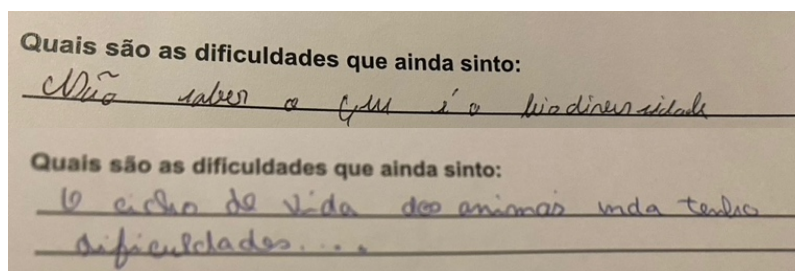 Quais são as dificuldades que ainda sinto:
Não saber o que é a biodiversidade
Quais são as dificuldades que ainda sinto:
O ciclo de vida dos animais inda tenho
dificuldades....